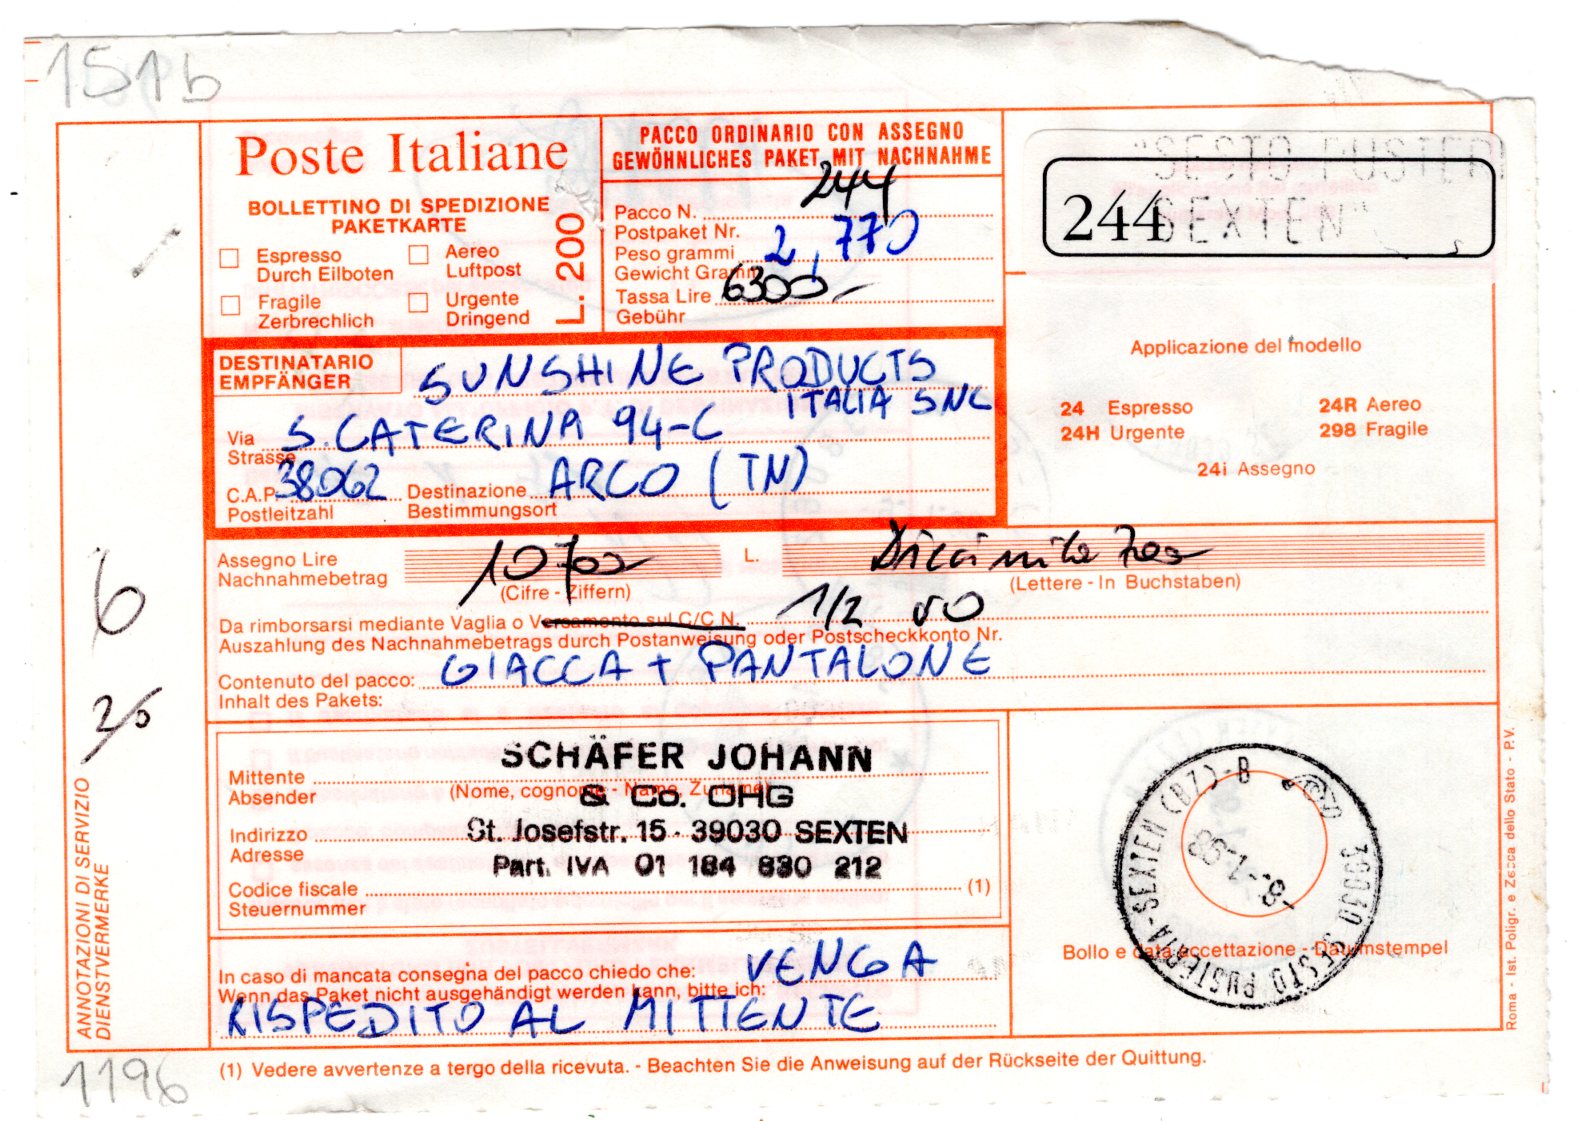 151b
Poste Italiane
BOLLETTINO DI SPEDIZIONE
PAKETKARTE
Espresso
Durch Eilboten
Aereo
Luftpost
Fragile
Zerbrechlich
Urgente
Dringend
L. 200
PACCO ORDINARIO CON ASSEGNO
GEWÖHNLICHES PAKET MIT NACHNAHME
Pacco N. 244
Postpaket Nr.
Peso grammi 2,770
Gewicht Gramm
Tassa Lire 6300,-
Gebühr
"SESTO PUSTER
244 SEXTEN"
Applicazione del modello
24 Espresso
24R Aereo
24H Urgente
298 Fragile
24i Assegno
DESTINATARIO
EMPFÄNGER
SUNSHINE PRODUCTS
ITALIA SNC
Via S. CATERINA 94-C
Strasse
C.A.P. 38062 Destinazione ARCO (TN)
Postleitzahl Bestimmungsort
Assegno Lire 10700 L. Diecimila700
Nachnahmebetrag
(Cifre - Ziffern)
(Lettere - In Buchstaben)
Da rimborsarsi mediante Vaglia o Versamento sul C/C N. 1/2 50
Auszahlung des Nachnahmebetrags durch Postanweisung oder Postscheckkonto Nr.
Contenuto del pacco: GIACCA + PANTALONE
Inhalt des Pakets:
6
25
ANNOTAZIONI DI SERVIZIO
DIENSTVERMERKE
Mittente SCHÄFER JOHANN
Absender (Nome, cognome - Name, Zuname)
& Co. OHG
Indirizzo St. Josefstr. 15 - 39030 SEXTEN
Adresse
Part. IVA 01 184 830 212
Codice fiscale (1)
Steuernummer
In caso di mancata consegna del pacco chiedo che: VENGA
Wenn das Paket nicht ausgehändigt werden kann, bitte ich:
RISPEDITO AL MITTENTE
Bollo e data accettazione - Datumstempel
39030 SESTO PUSTERIA-SEXTEN (BZ)-B
-8.-1.-98
Roma - Ist. Poligr. e Zecca dello Stato - P.V.
(1) Vedere avvertenze a tergo della ricevuta. - Beachten Sie die Anweisung auf der Rückseite der Quittung.
1196